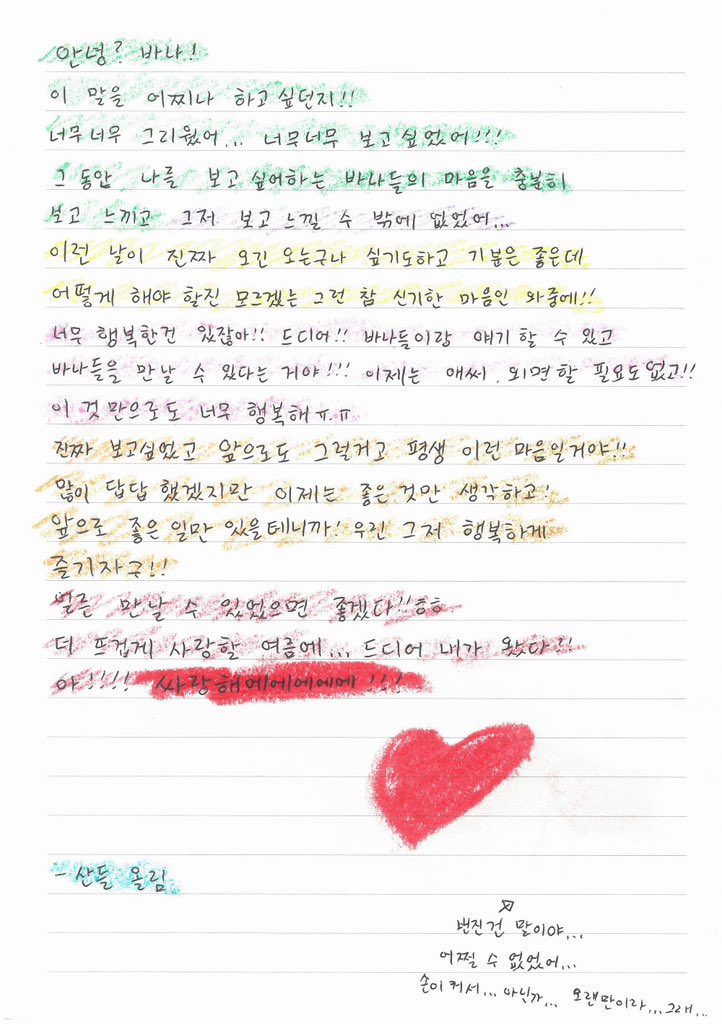 안녕? 바나!
이 말을 어찌나 하고 싶던지!!
너무너무 그리웠어... 너무너무 보고싶었어!!!
그 동안 나를 보고 싶어하는 바나들의 마음을 충분히
보고 느끼고 그저 보고 느낄 수 밖에 없었어...
이런 날이 진짜 오긴 오는구나 싶기도하고 기분은 좋은데
어떻게 해야 할진 모르겠는 그런 참 신기한 마음인 와중에!!
너무 행복한건 있잖아!! 드디어!! 바나들이랑 얘기 할 수 있고
바나들을 만날 수 있다는 거야!!! 이제는 애써, 외면할 필요도 없고!!
이 것 만으로도 너무 행복해 ㅠ.ㅠ
진짜 보고싶었고 앞으로도 그럴거고 평생 이런 마음일거야!!
많이 답답 했겠지만 이제는 좋은것만 생각하고!
앞으로 좋은 일만 있을테니까! 우린 그저 행복하게
즐기자구!!
얼른 만날 수 있었으면 좋겠다!!ㅎㅎ
더 뜨겁게 사랑할 여름에... 드디어 내가 왔다!!
야!!!! 싸랑해에에에에에!!!
- 산들 올림
번진건 말이야...
어쩔 수 없었어...
손이 커서... 아닌가... 오랜만이라... 그래...